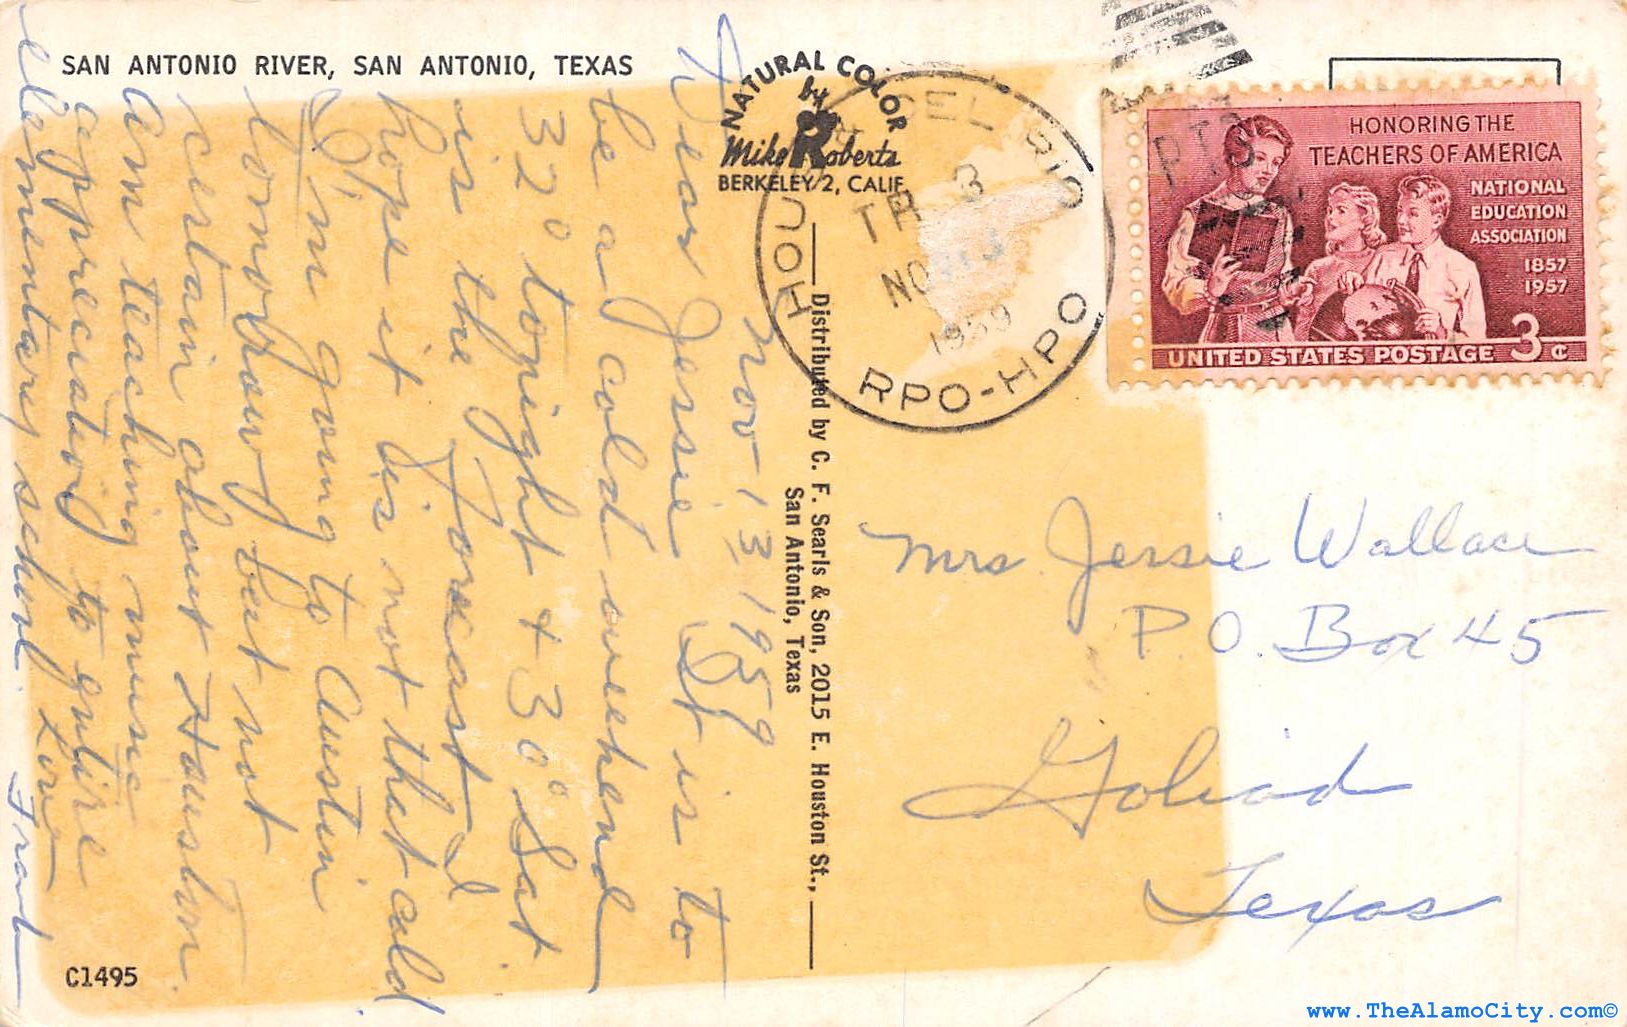 SAN ANTONIO RIVER, SAN ANTONIO, TEXAS
NATURAL COLOR
by
Mike Roberts
BERKELEY 2, CALIF.
Nov 13 1959
Dear Jessie It is to
be a cold weekend
32° tonight + 30° Sat
is the forecast I
hope it is not that cold
I'm going to Austin
tomorrow but not
certain about Houston.
Am teaching music
appreciation to entire
elementary school. Love
C1495
Distributed by C. F. Searls & Son, 2015 E. Houston St.,
San Antonio, Texas
HOU DEL RIO
TR 3
NO
1959
RPO-HPO
RTS
HONORING THE
TEACHERS OF AMERICA
NATIONAL
EDUCATION
ASSOCIATION
1857
1957
3¢
UNITED STATES POSTAGE
Mrs Jessie Wallace
P.O. Box 45
Goliad
Texas
www.TheAlamoCity.com©